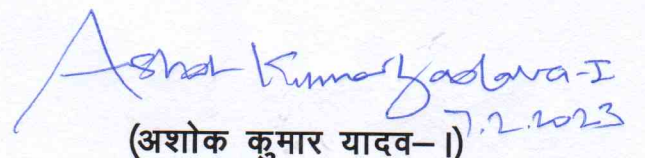 Ashok Kumar Yadava-I
7.2.2023
(अशोक कुमार यादव–।)